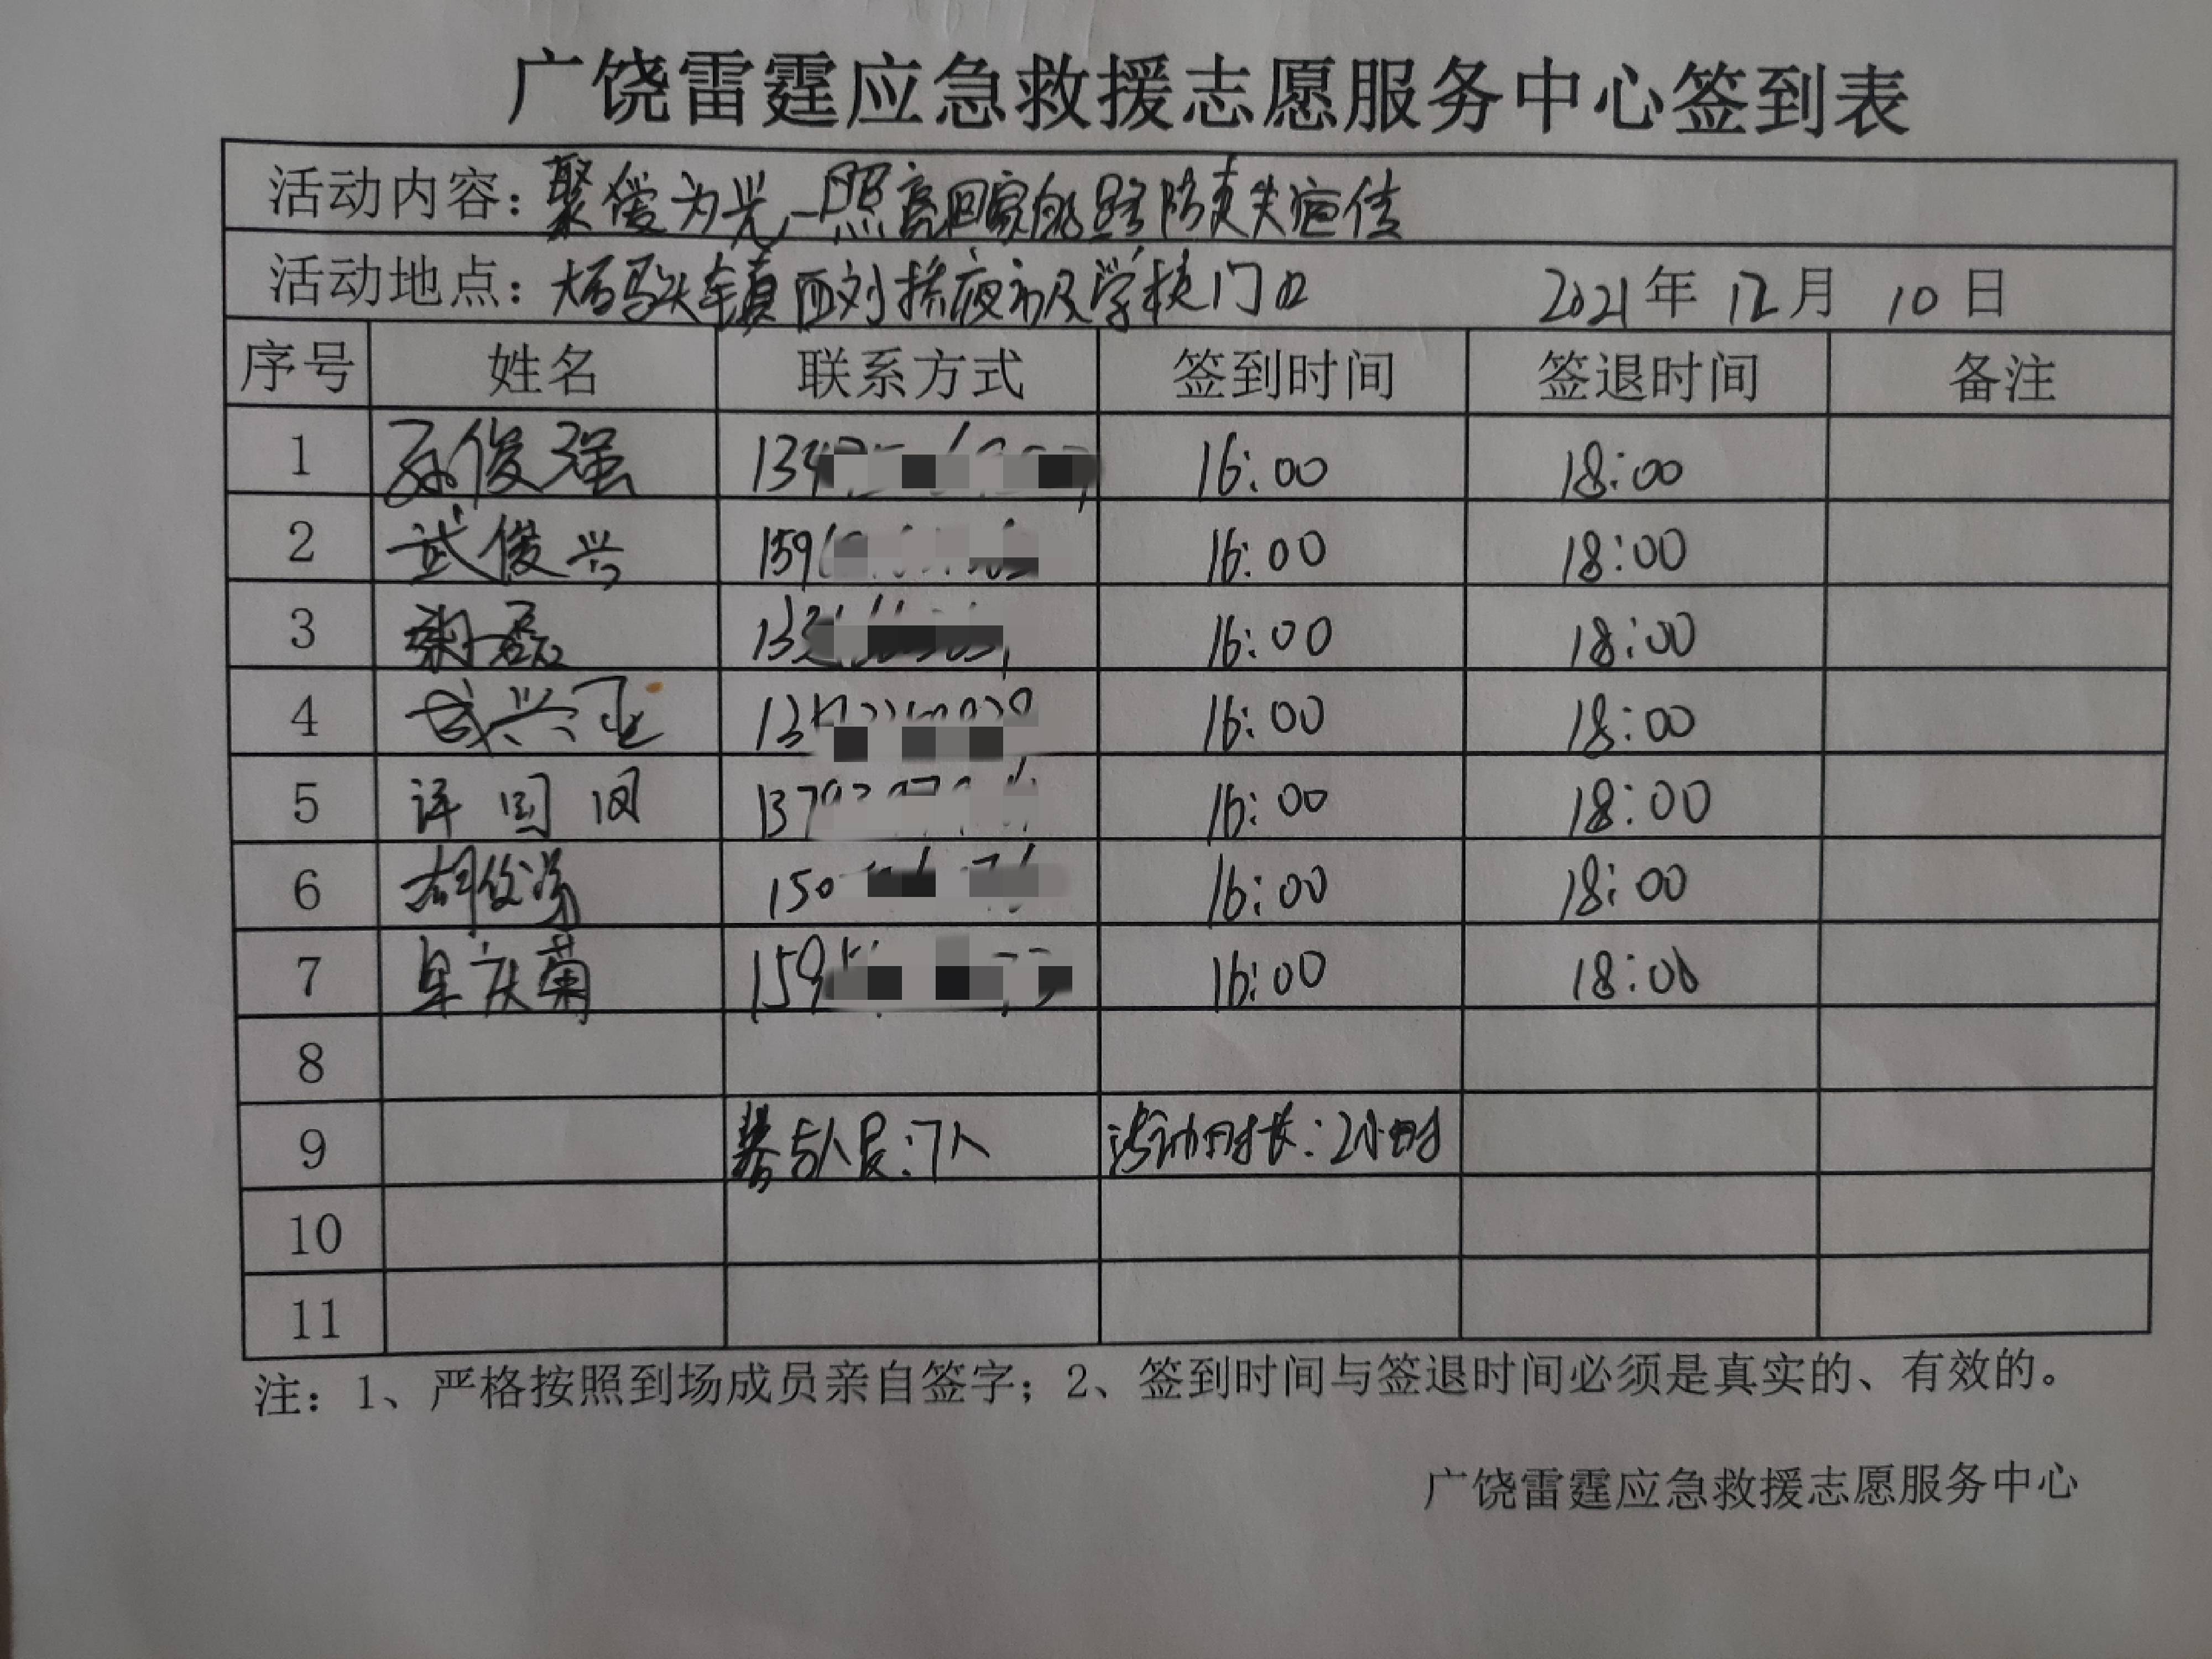 广饶雷霆应急救援志愿服务中心签到表
活动内容：聚爱为光,照亮回家的路防走失宣传
活动地点：大码头镇西刘桥 及学校门口 2021年 12月 10日
序号 姓名 联系方式 签到时间 签退时间 备注
1 孙俊强 134 16:00 18:00
2 武俊兴 159 16:00 18:00
3 磊 133 16:00 18:00
4 成兴亚 13 16:00 18:00
5 许国 137 16:00 18:00
6 胡俊 150 16:00 18:00
7 庆菊 159 16:00 18:00
8
9 参与人员:7人 活动时长:2小时
10
11
注：1、严格按照到场成员亲自签字；2、签到时间与签退时间必须是真实的、有效的。
广饶雷霆应急救援志愿服务中心